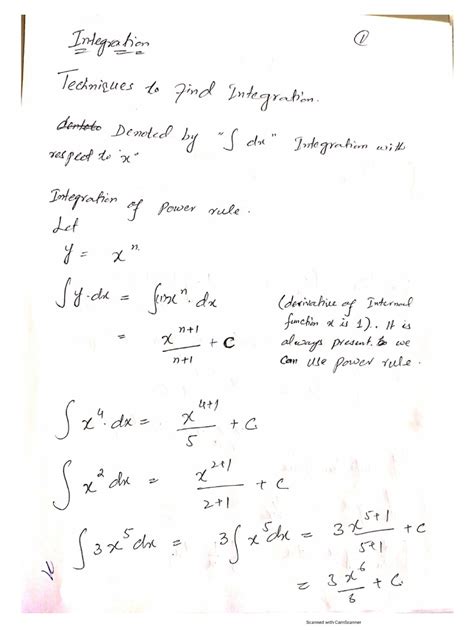 Integration ①
Techniques to Find Integration.
Denoted by "∫ dx" Integration with
respect to "x"
Integration of Power rule.
Let
y = x^n.
∫y·dx = ∫x^n·dx (derivative of Internal
function x is 1). It is
= x^(n+1)/(n+1) + C always present. So we
can use power rule.
∫x^4·dx = x^(4+1)/5 + C
∫x^2 dx = x^(2+1)/(2+1) + C
∫3x^5 dx = 3∫x^5 dx = 3x^(5+1)/(5+1) + C
= 3x^6/6 + C
Scanned with CamScanner